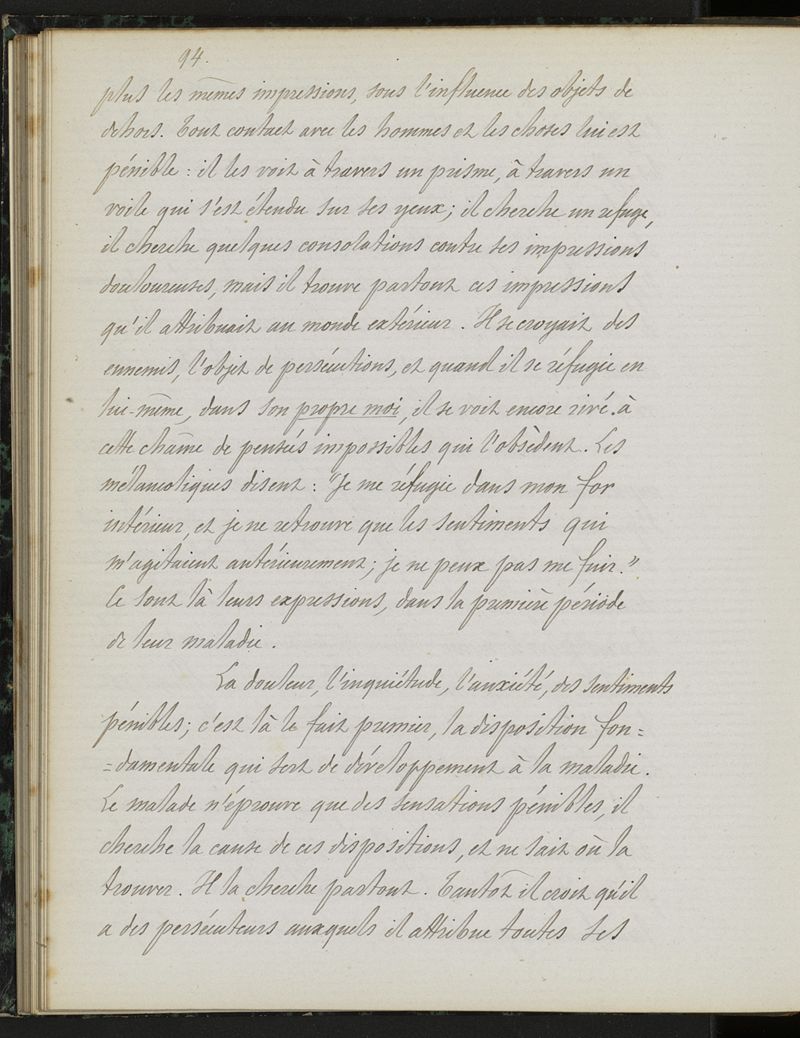 94.
plus les mêmes impressions, sous l'influence des objets de
dehors. Tout contact avec les hommes et les choses lui est
pénible : il les voit à travers un prisme, à travers un
voile qui s'est étendu sur ses yeux ; il cherche un refuge,
il cherche quelques consolations contre ses impressions
douloureuses, mais il trouve partout ces impressions
qu'il attribuait au monde extérieur. Il se croyait des
ennemis, l'objet de persécutions, et quand il se réfugie en
lui-même, dans son propre moi, il se voit encore rivé à
cette chaîne de pensées impossibles qui l'obsèdent. Les
mélancoliques disent : "Je me réfugie dans mon for
intérieur, et je ne retrouve que les sentiments qui
m'agitaient antérieurement ; je ne peux pas me fuir."
Ce sont là leurs expressions, dans la première période
de leur maladie.
La douleur, l'inquiétude, l'anxiété, des sentiments
pénibles ; c'est là le fait premier, la disposition fon=
=damentale qui sert de développement à la maladie.
Le malade n'éprouve que des sensations pénibles, il
cherche la cause de ces dispositions, et ne sait où la
trouver. Il la cherche partout. Tantôt il croit qu'il
a des persécuteurs auxquels il attribue toutes ses